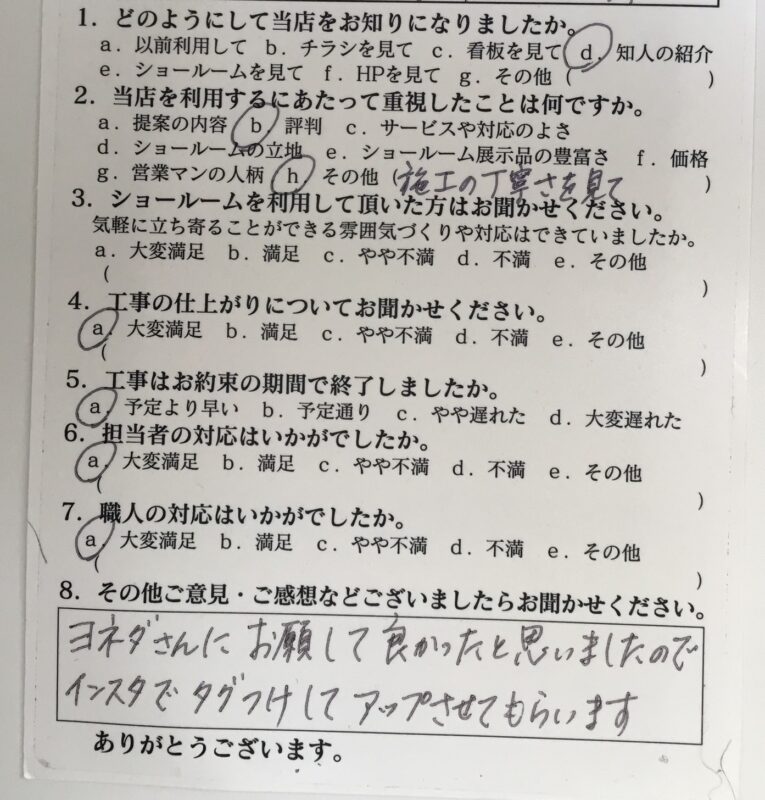 1．どのようにして当店をお知りになりましたか。
a．以前利用して b．チラシを見て c．看板を見て d．知人の紹介
e．ショールームを見て f．HPを見て g．その他（　　　　　　　）
2．当店を利用するにあたって重視したことは何ですか。
a．提案の内容 b．評判 c．サービスや対応のよさ
d．ショールームの立地 e．ショールーム展示品の豊富さ f．価格
g．営業マンの人柄 h．その他（施工の丁寧さを見て　　　）
3．ショールームを利用して頂いた方はお聞かせください。
気軽に立ち寄ることができる雰囲気づくりや対応はできていましたか。
a．大変満足 b．満足 c．やや不満 d．不満 e．その他
（　　　　　　　　　　　　　　　　　　　　）
4．工事の仕上がりについてお聞かせください。
a．大変満足 b．満足 c．やや不満 d．不満 e．その他
（　　　　　　　　　　　　　　　　　　　　）
5．工事はお約束の期間で終了しましたか。
a．予定より早い b．予定通り c．やや遅れた d．大変遅れた
6．担当者の対応はいかがでしたか。
a．大変満足 b．満足 c．やや不満 d．不満 e．その他
（　　　　　　　　　　　　　　　　　　　　）
7．職人の対応はいかがでしたか。
a．大変満足 b．満足 c．やや不満 d．不満 e．その他
（　　　　　　　　　　　　　　　　　　　　）
8．その他ご意見・ご感想などございましたらお聞かせください。
ヨネダさんにお願して良かったと思いましたので
インスタでタグつけしてアップさせてもらいます
ありがとうございます。